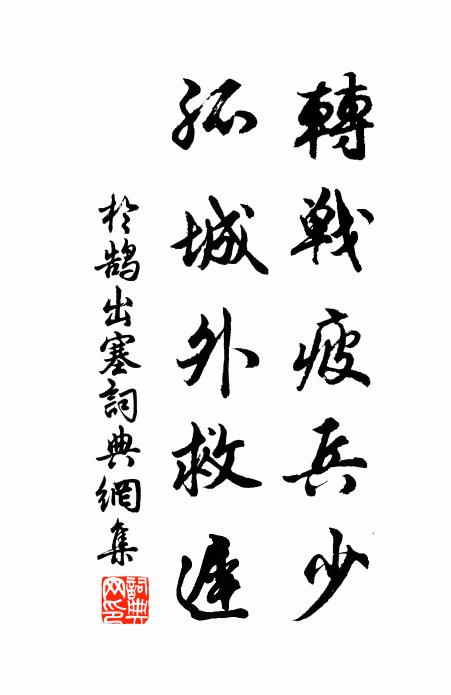 轉戰疲兵少
孤城外救遲
於鵠出塞詞典網集
詞典网印